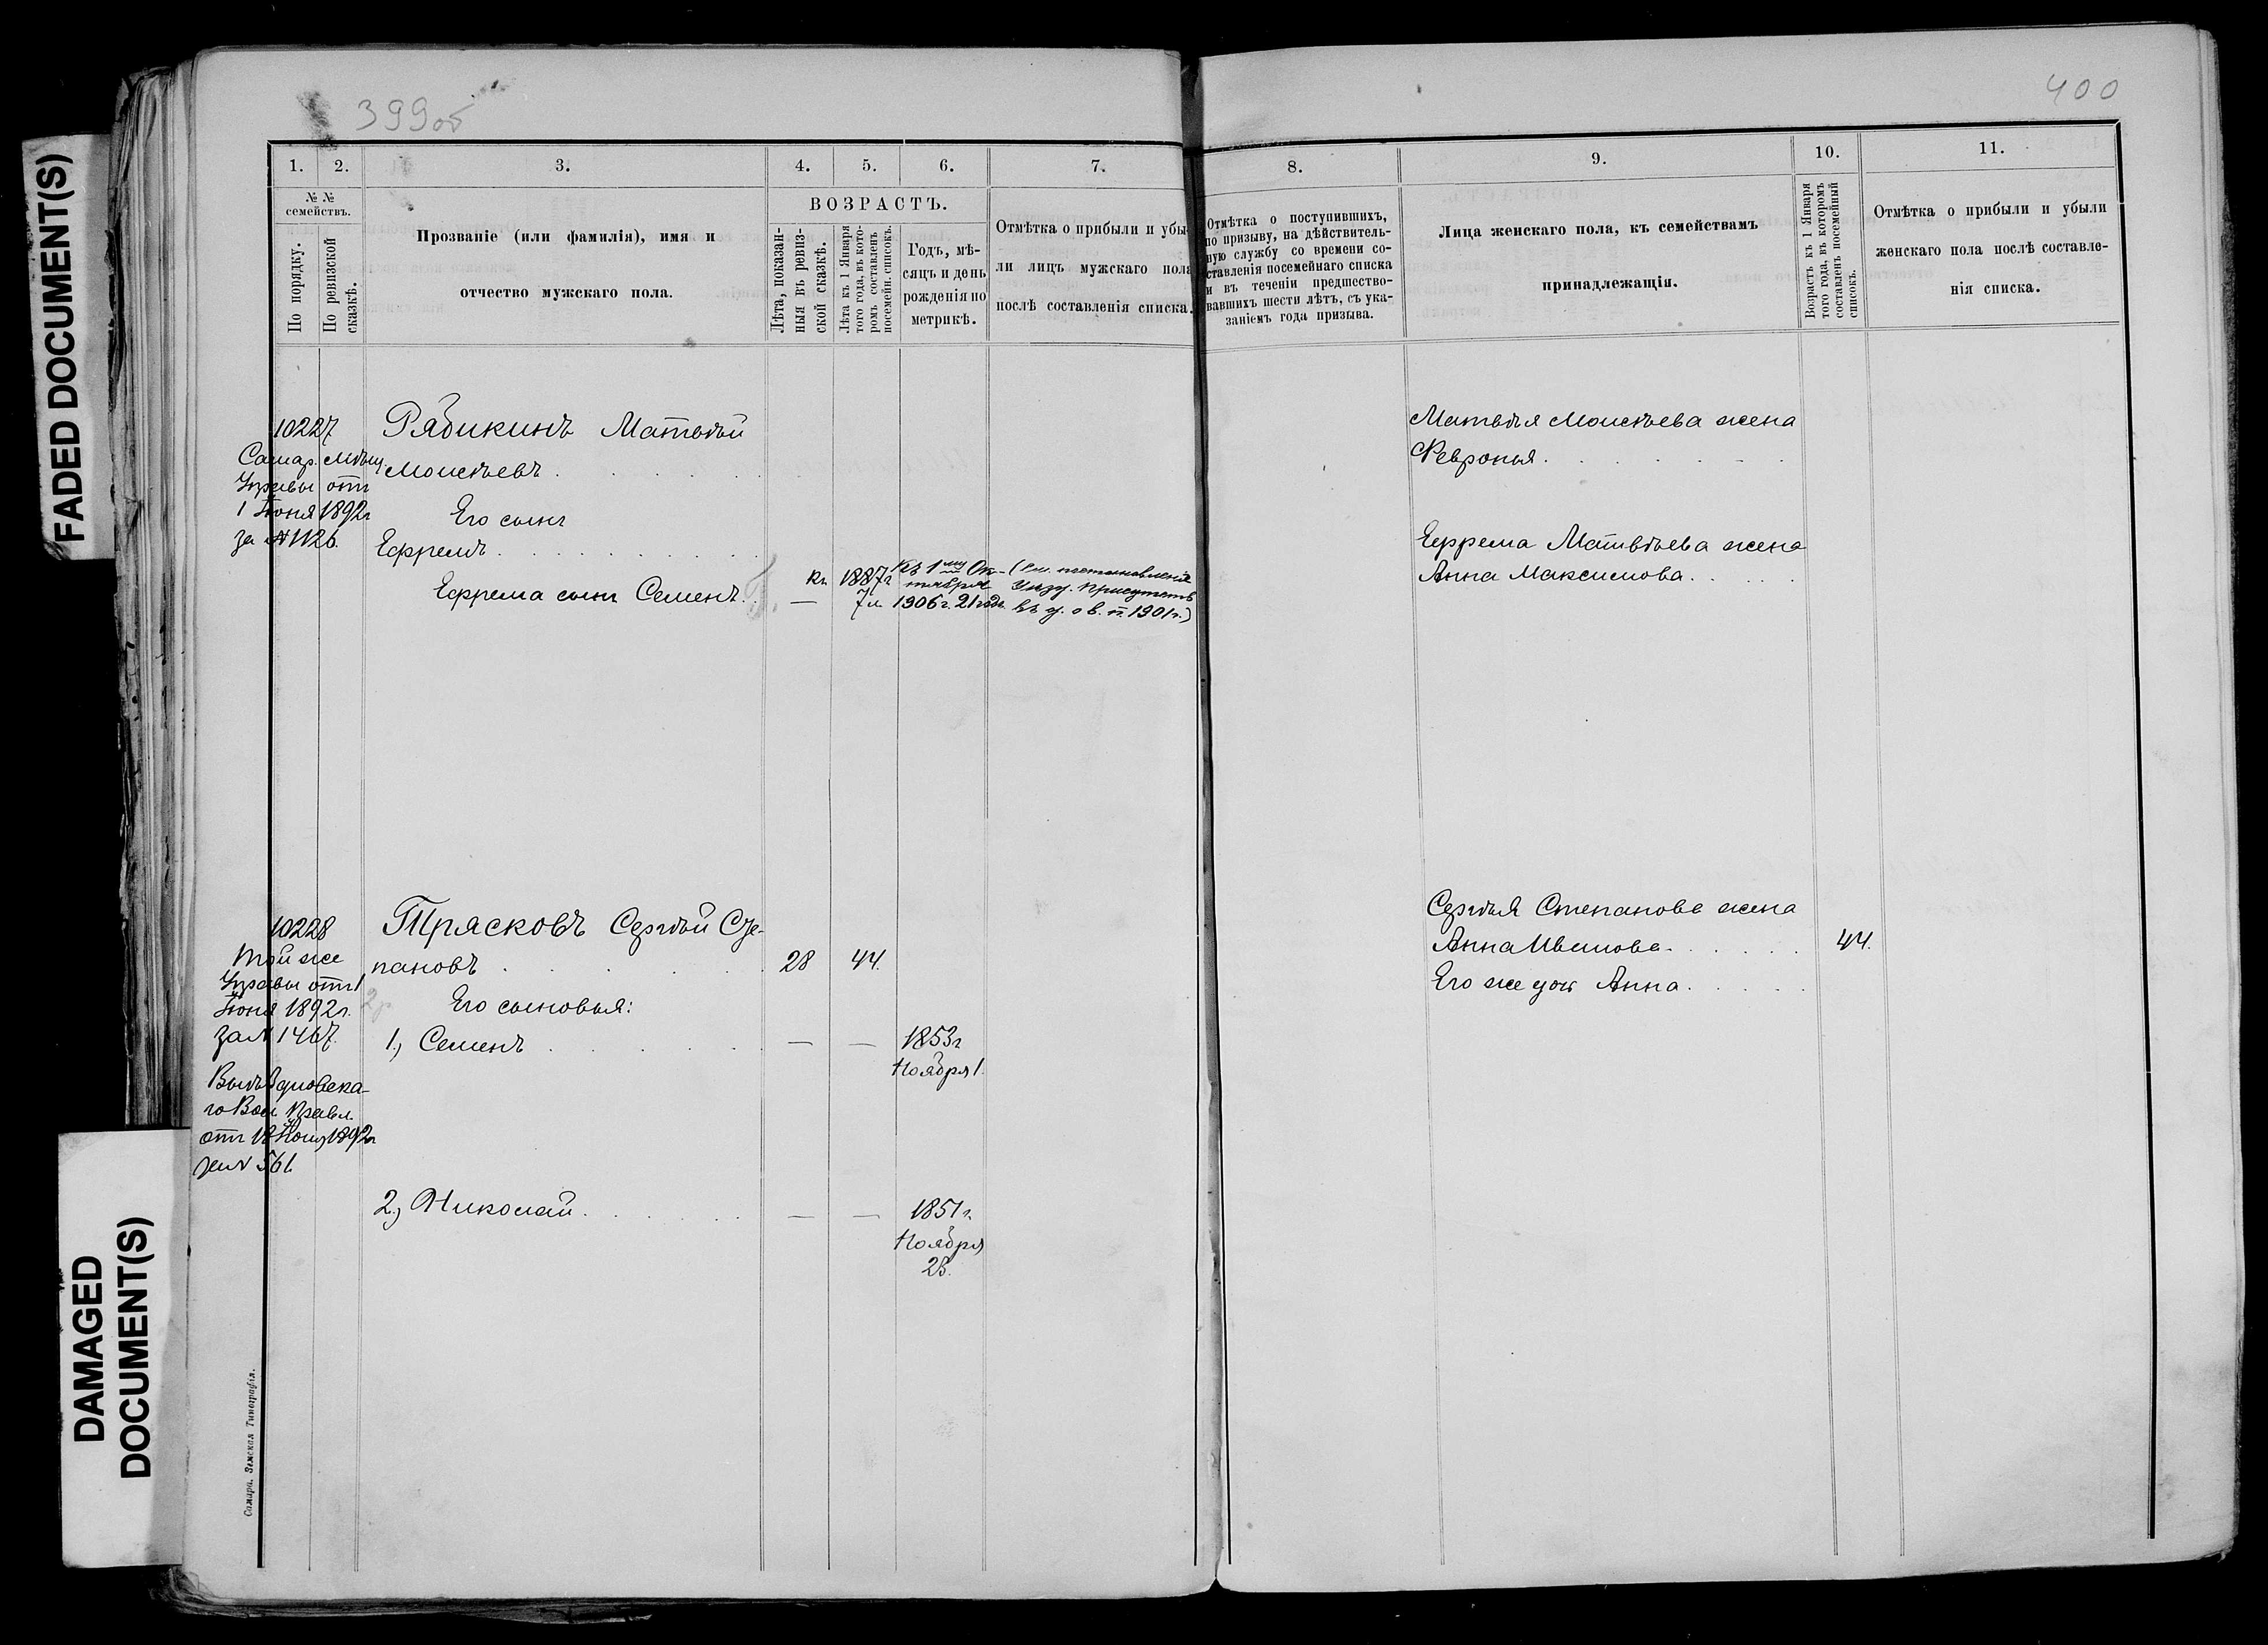 FADED DOCUMENT(S)
DAMAGED
DOCUMENT(S)
399об
400
1.
2.
3.
4.
5.
6.
7.
8.
9.
10.
11.
№ №
семействъ.
По порядку.
По ревизской
сказкѣ.
Прозваніе (или фамилія), имя и
отчество мужскаго пола.
ВОЗРАСТЪ.
Лѣта, показан-
ныя въ ревиз-
ской сказкѣ.
Лѣта къ 1 Января
того года, въ кото-
ромъ составленъ
посемейн. списокъ.
Годъ, мѣ-
сяцъ и день
рожденія по
метрикѣ.
Отмѣтка о прибыли и убы-
ли лицъ мужскаго пола
послѣ составленія списка.
Отмѣтка о поступившихъ,
по призыву, на дѣйствитель-
ную службу со времени со-
ставленія посемейнаго списка
и въ теченіи предшество-
вавшихъ шести лѣтъ, съ ука-
заніемъ года призыва.
Лица женскаго пола, къ семействамъ
принадлежащія.
Возрастъ къ 1 Января
того года, въ которомъ
составленъ посемейный
списокъ.
Отмѣтка о прибыли и убыли
женскаго пола послѣ составле-
нія списка.
10227
Самар. Мѣщ.
Управы отъ
1 Іюня 1892г
за № 1126.
Рябикинъ Матвѣй
Моисѣевъ
Его сынъ
Ефремъ
Ефрема сынъ Семенъ
Къ 1887г
7 л.
Къ 1му Ок-
тября
1906г. 21 годъ
(См. постановленіе
Уѣзд. Присутств
въ г. о в. п. 1901г.)
Матвѣя Моисѣева жена
Февронья
Ефрема Матвѣева жена
Анна Максимова
10228
Той же
Управы отъ 1
Іюня 1892г.
за № 1467.
го Вол. Правл.
за № 561
Трясковъ Сергѣй Сте-
пановъ
28
44.
2р
Его сыновья:
1., Семенъ
— —
1853г
Ноября 1.
2., Николай
— —
1851г.
Ноября
23.
Сергѣя Степанова жена
Анна Иванова
44.
Его же дочь Анна
Самара. Земская Типографія.